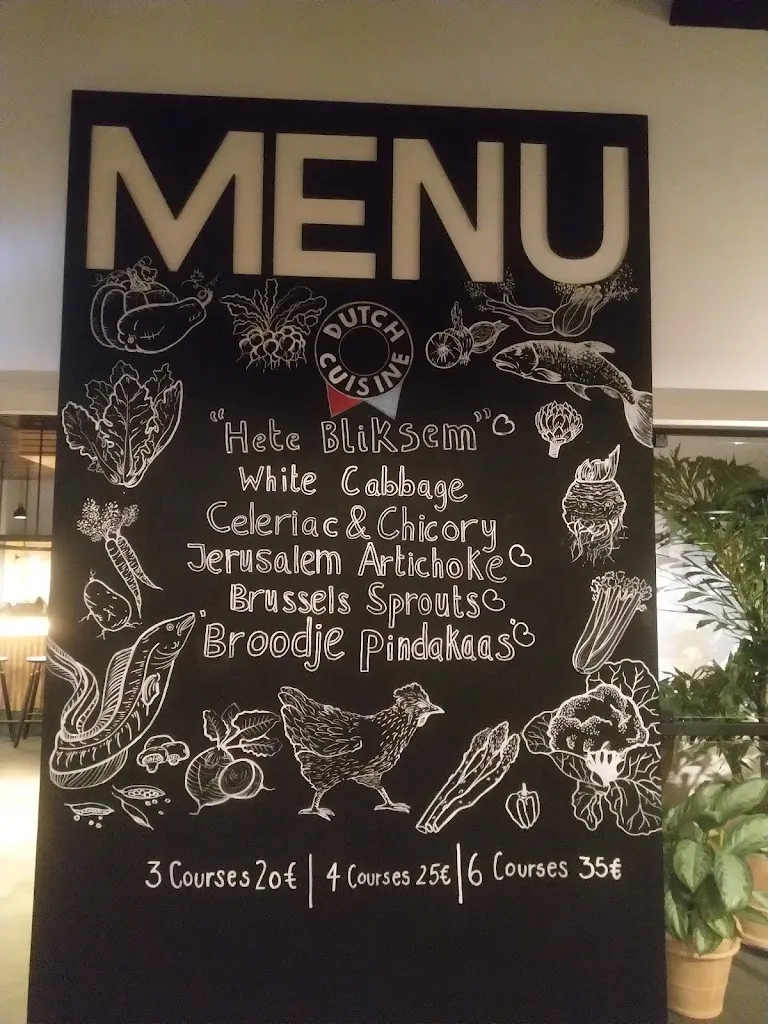 MENU
DUTCH
CUISINE
"Hete Bliksem"
White Cabbage
Celeriac & Chicory
Jerusalem Artichoke
Brussels Sprouts
"Broodje pindakaas"
3 Courses 20€ | 4 Courses 25€ | 6 Courses 35€